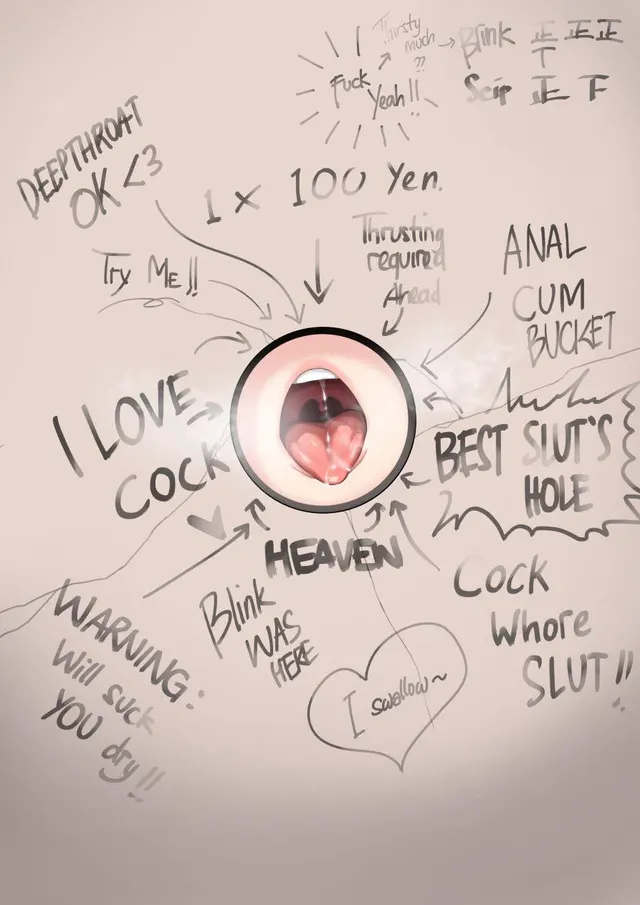 Thirsty
much
??
Blink 正 正 正
T
Scip 正 F
Fuck
Yeah!!
DEEPTHROAT
OK <3
1 x 100 Yen.
Try ME!!
Thrusting
required
Ahead
ANAL
CUM
BUCKET
I LOVE
COCK
BEST SLUT'S
HOLE
HEAVEN
Blink
WAS
HERE
Cock
Whore
SLUT!!
WARNING:
Will suck
YOU dry!!
I swallow~